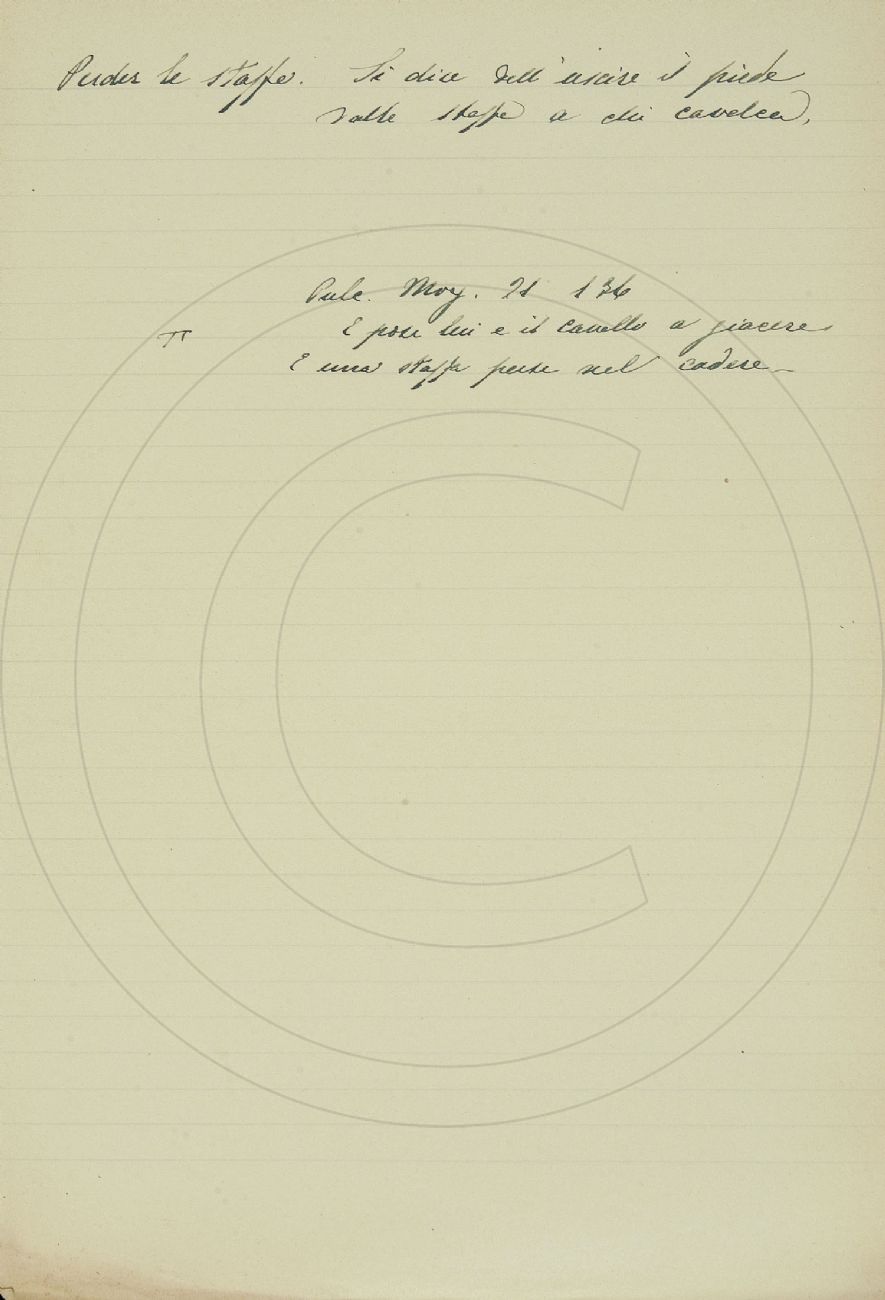 Perder le staffe. Si dice dell'uscire il piede
dalle staffe a chi cavalca,
Pulc. Morg. 21 136
E pose lui e il cavallo a giacere
π
E una staffa perse nel cadere